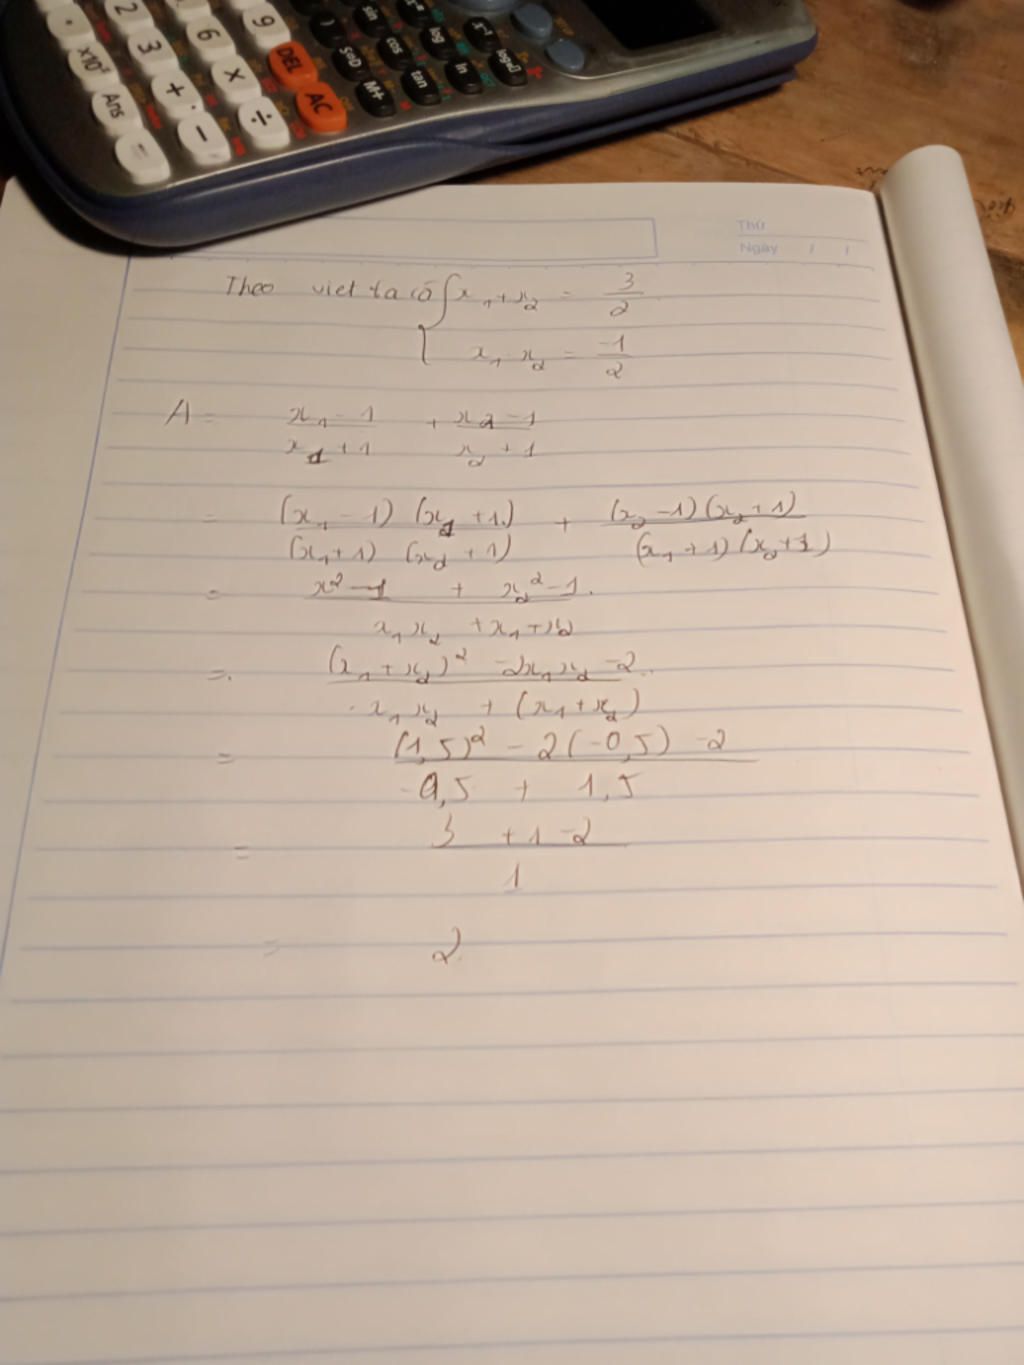 . 2 9 ) sin
×10ˣ 3 6 DEL S⇔D cos log x⁻¹
Ans + × AC M+ tan ln log₂
= − ÷
Thứ
Ngày / /
Theo viet ta có { x₁ + x₂ = 3/2
x₁ x₂ = -1/2
A = (x₁ - 1)/(x₁ + 1) + (x₂ - 1)/(x₂ + 1)
= (x₁ - 1) (x₁ + 1)/(x₁ + 1) (x₂ + 1) + (x₂ - 1)(x₂ + 1)/(x₁ + 1)(x₂ + 1)
= (x² - 1 + x₂² - 1)/(x₁x₂ + x₁ + x₂)
= ((x₁ + x₂)² - 2x₁x₂ - 2)/(x₁x₂ + (x₁ + x₂))
= ((1,5)² - 2(-0,5) - 2)/(-0,5 + 1,5)
= (3 + 1 - 2)/1
= 2